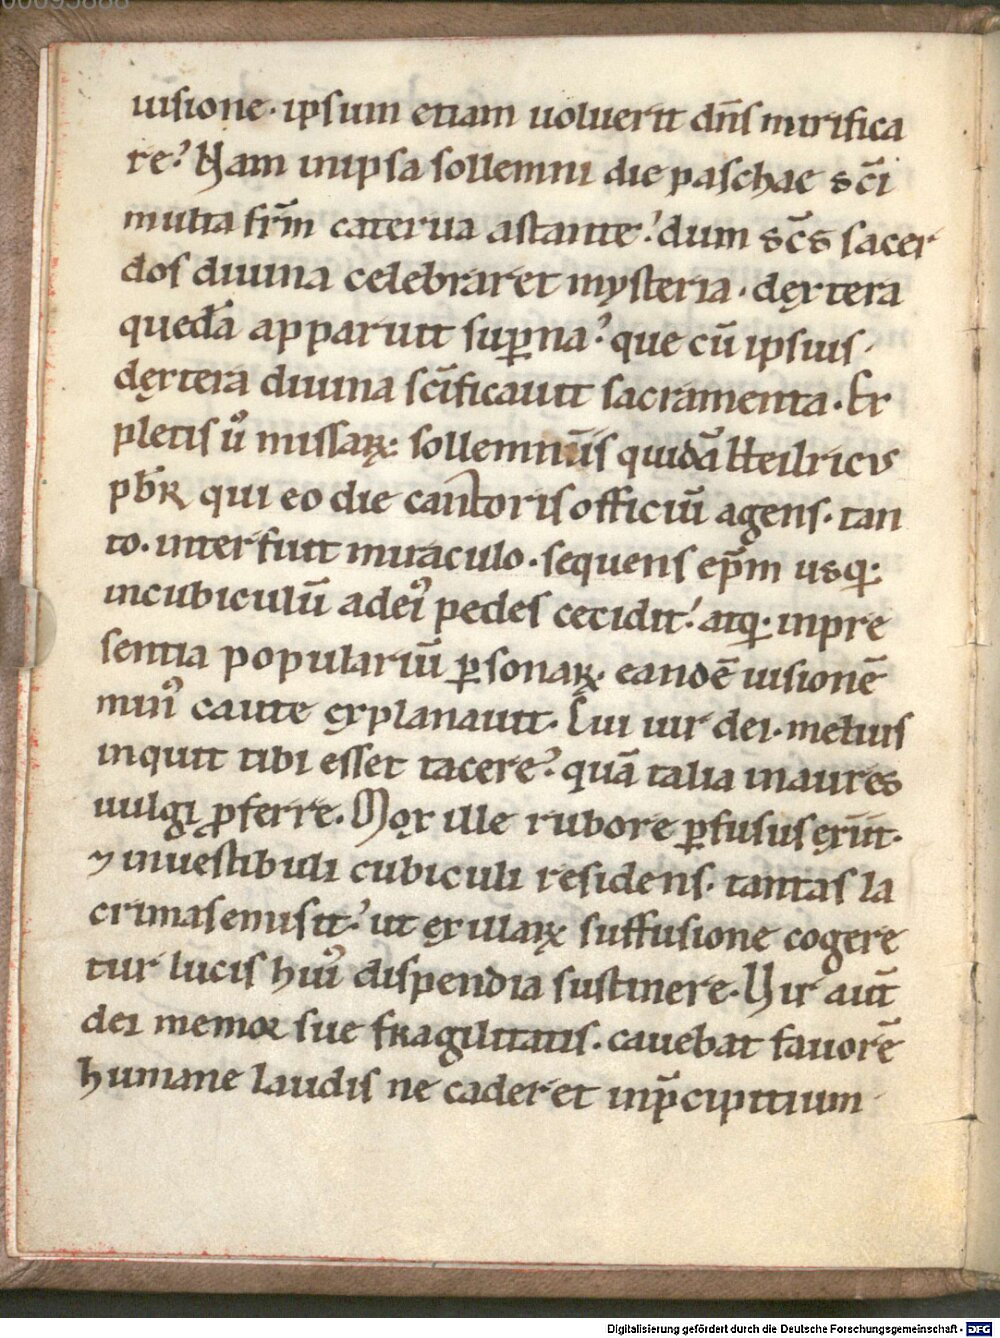 00095888
uisione· ipsum etiam uoluerit dn̄s mirifica
re? Nam inipsa sollemni die paschae sc̄i
multa fr̄m caterua astante· dum sc̄s sacer
dos diuina celebraret mysteria· dęxtera
quedā apparuit suꝑna? que cū ipsius·
dęxtera diuina sc̄ificauit sacramenta· Ex
pletis ū missaꝝ sollemniīs quidā Heilricus
pb̄r qui eo die cantoris officiū agens· tan
to· interfuit miraculo· sequens ep̄m usq;
incubiculū adei᾽ pedes cecidit· atq; inpre
sentia populariū ꝑsonaꝝ· eandē uisionē
min᾽ caute ęxplanauit· Cui uir dei· melius
inquit tibi esset tacere? quā talia inaures
uulgi ꝓferre· Mox ille rubore ꝑfusus ęxiīt·
⁊ inuestibuli cubiculi residens· tantas la
crimas emisit? ut ęx illaꝝ suffusione cogere
tur lucis hui᾽ dispendia sustinere· Vir aut̄
dei memor sue fragilitatis· cauebat fauorē
humane laudis ne caderet inp̄cipitium
Digitalisierung gefördert durch die Deutsche Forschungsgemeinschaft - DFG